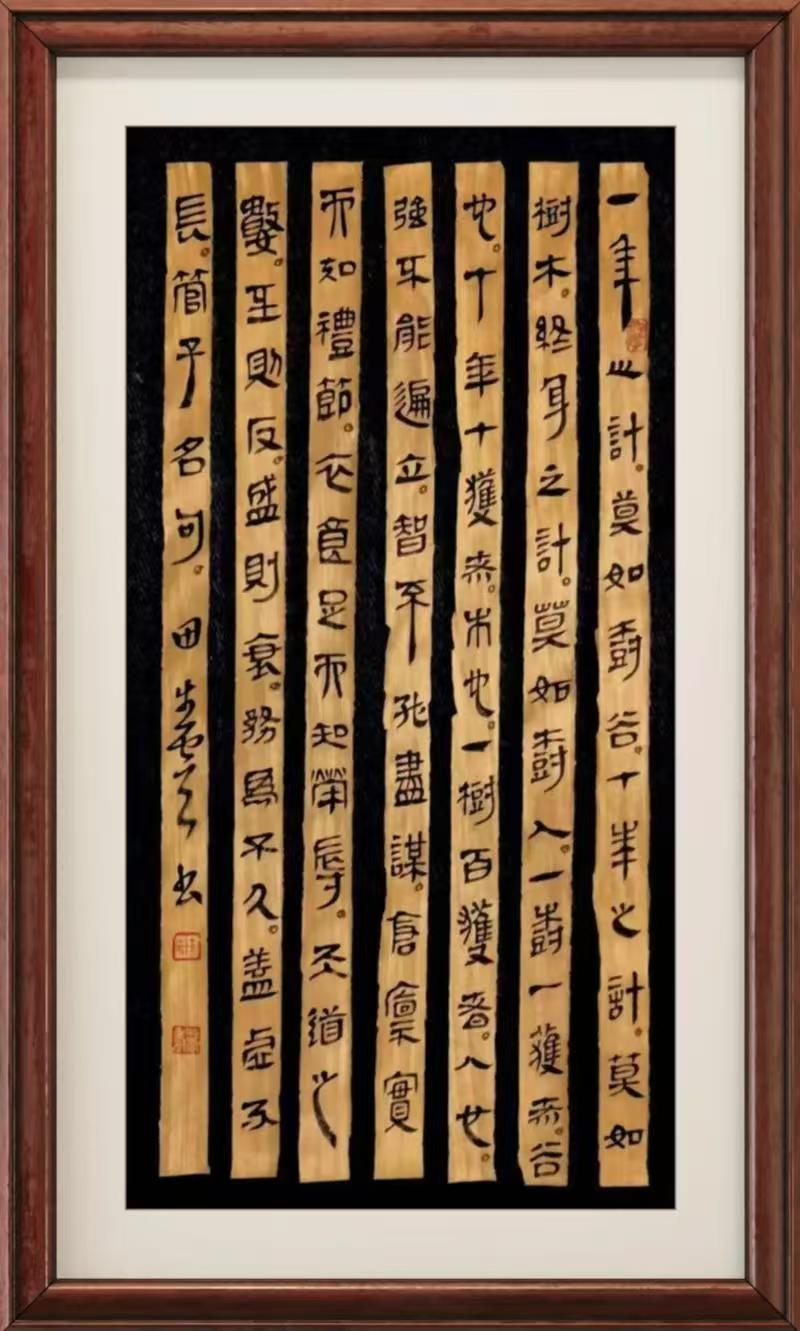 一年之計。莫如樹谷。十年之計。莫如
樹木。終身之計。莫如樹人。一樹一獲者。谷
也。十年十獲者。木也。一樹百獲者。人也。
強不能遍立。智不盡謀。倉廩實
而知禮節。衣食足而知榮辱。天道之
數。至則反。盛則衰。務為不久。蓋虛不
長。管子名句。田书